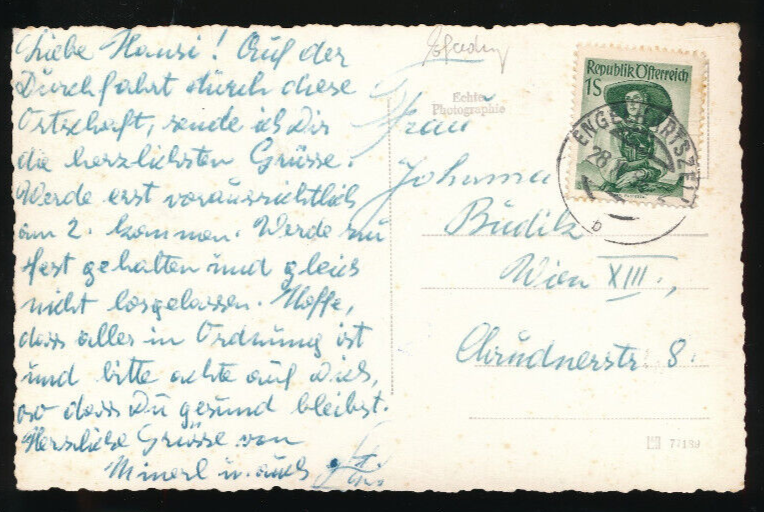 Liebe Hansi! Auf der
Durchfahrt durch diese
Ortschaft, sende ich Dir
die herzlichsten Grüsse.
Werde erst voraussichtlich
am 2. kommen. Werde zu
fest gehalten und gleich
nicht losgelassen. Hoffe,
dass alles in Ordnung ist
und bitte achte auf Dich,
so dass Du gesund bleibst.
Herzliche Grüsse von
Minerl u. auch
Echte
Photographie
Frau
Johanna
Budik
Wien XIII.,
Chrudnerstr. 8.
Republik Österreich
1S
ENGELHARTSZELL
28
b
77139